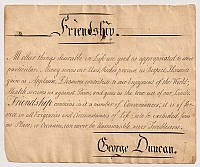 Friendship.
All other things desirable in Life are good as appropriated to some
particular. Money serves our Use, Riches procure us Respect, Honours
gain us Applause, Pleasures contribute to our Enjoyment of the World,
Health secures us against Pain, and gives us the true use of our Limbs.
Friendship contains in it a number of Conveniences, it is of Service
in all Exigencies and Circumstances of Life, is to be excluded from
no Place, or Occasion, can never be Unseasonable nor Troublesome.
George Duncan.